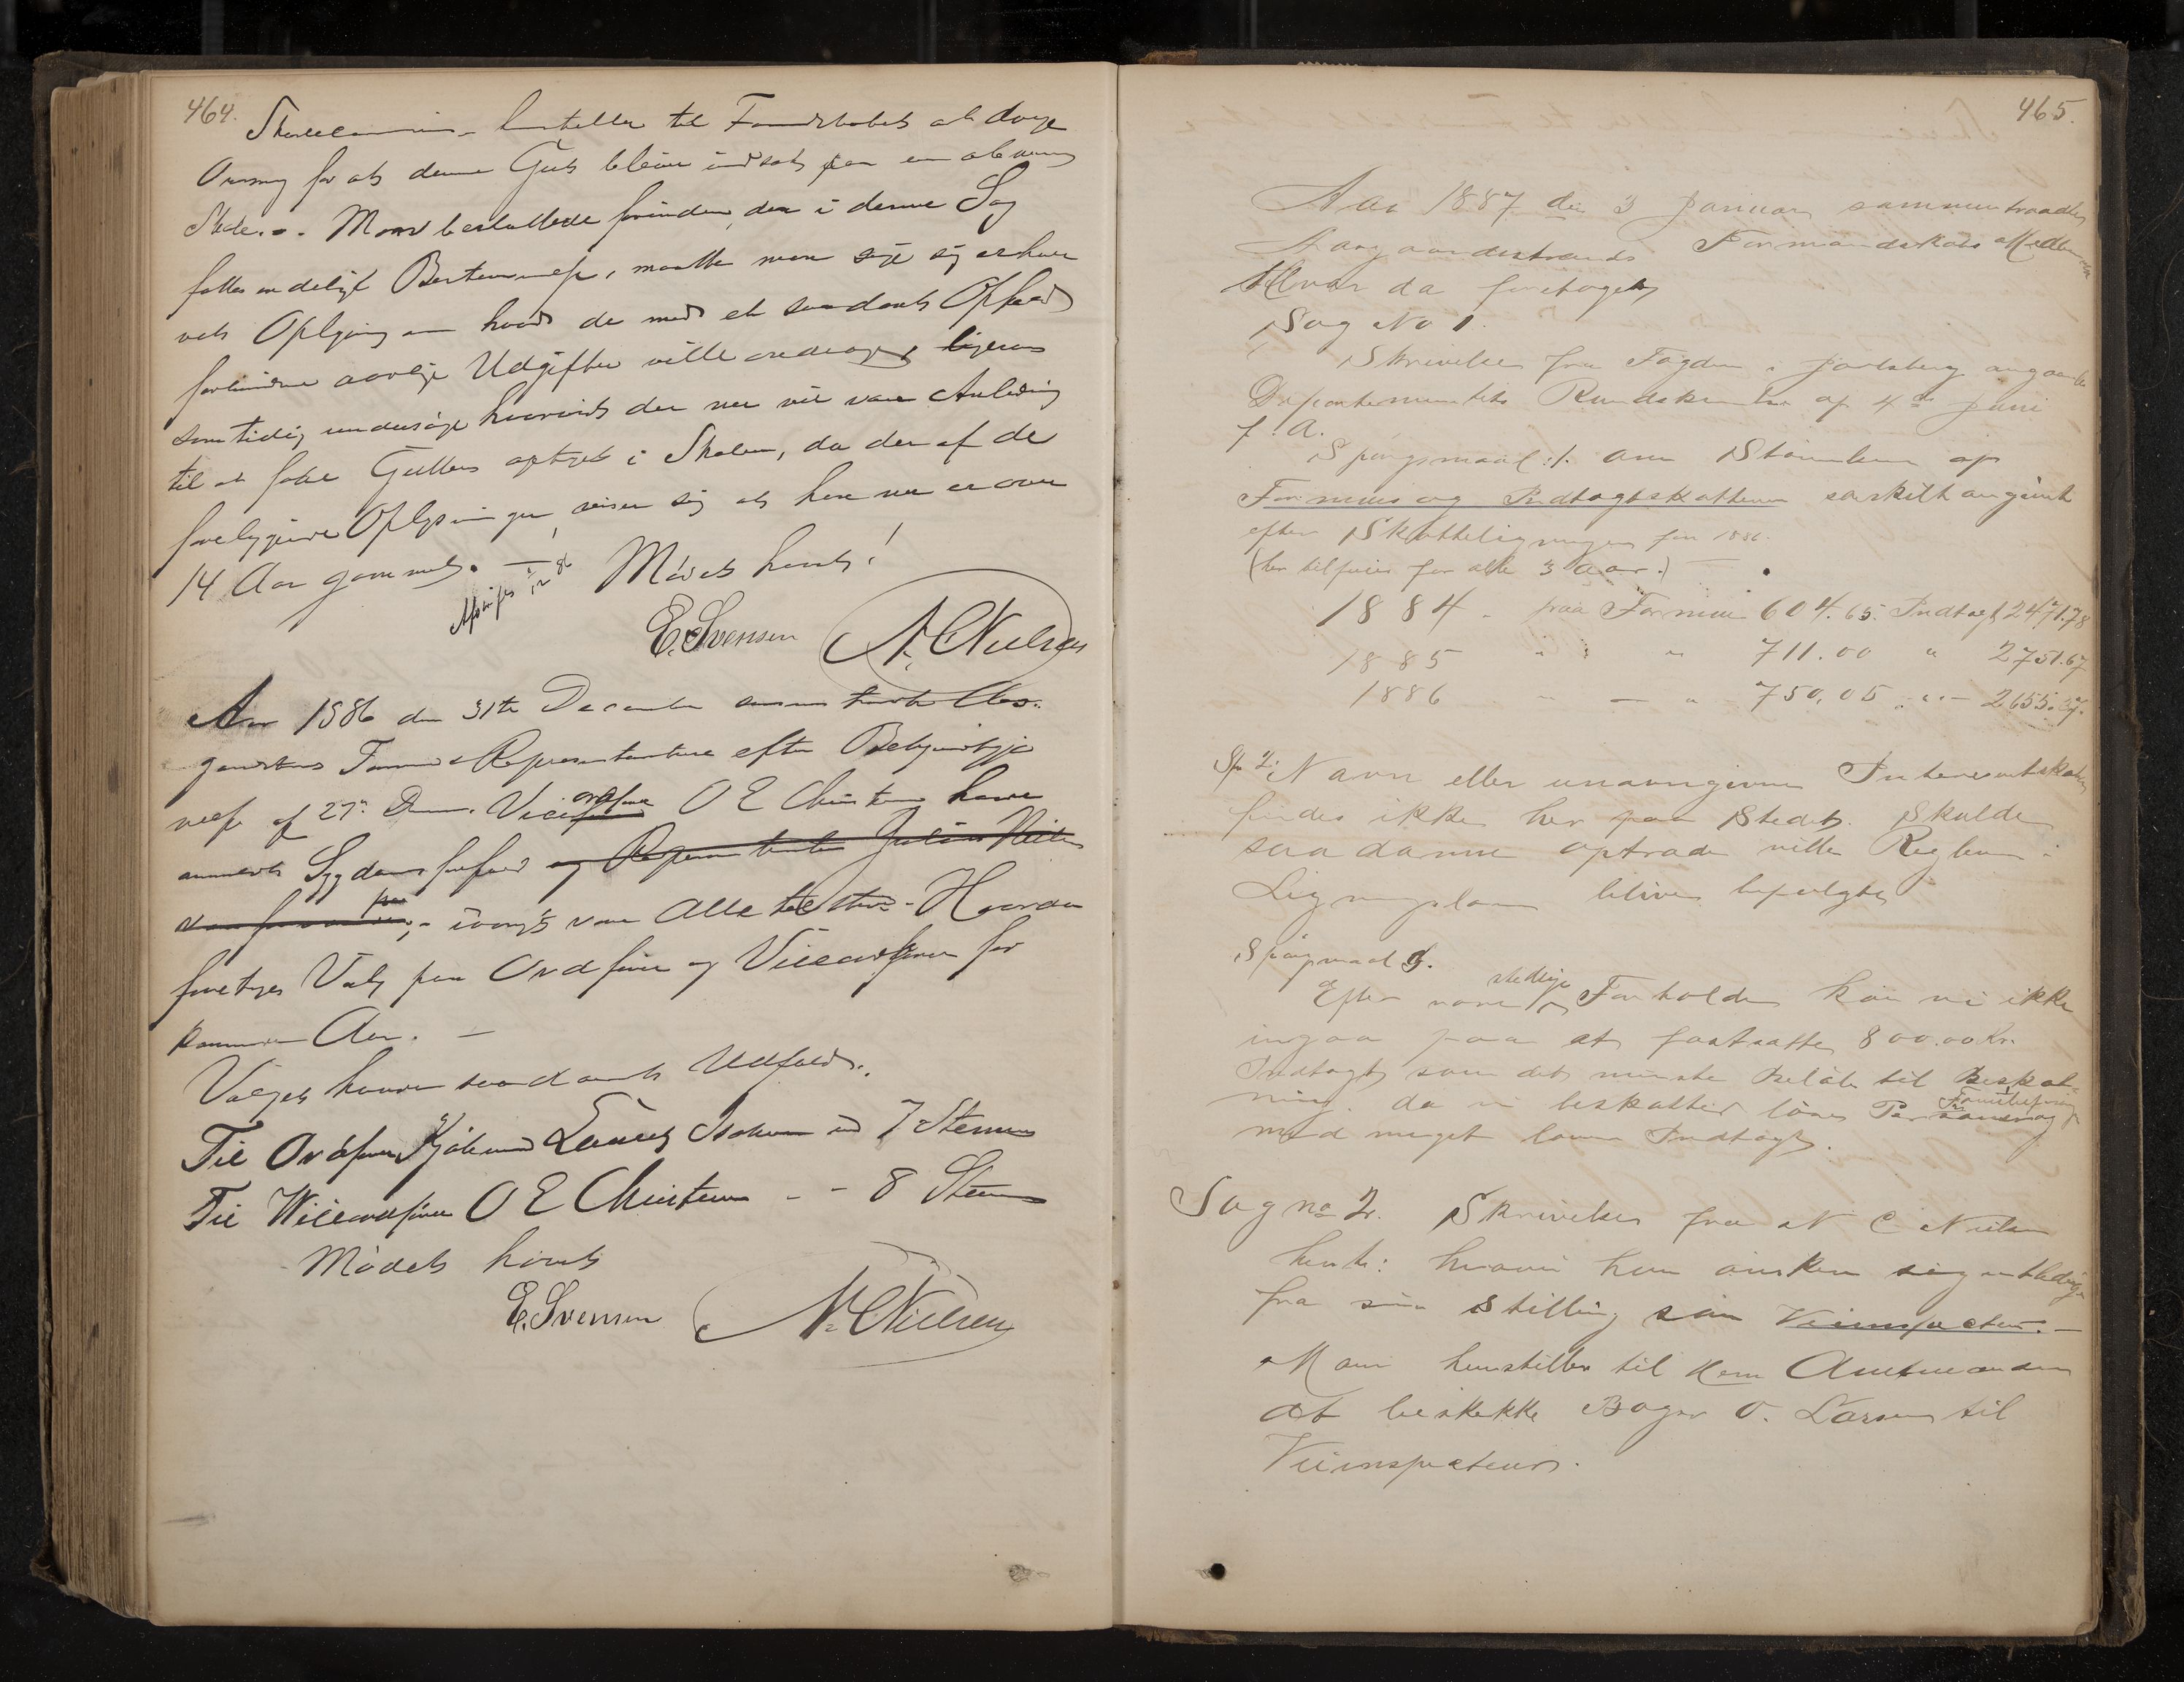 464.
Skolecommis- henstiller til Formandskabet at drage
Omsorg for at denne Gut bliver indsat paa en
Man besluttede forinden der i denne Sag
fattes endeligt Bestemmelse, maatte man søge sig erhver
vet Oplysning om hvad de med et saadant Ophold
forbundne aarlige Udgifter ville andrage, ligesom
samtidig undersøge hvorvidt der nu vil være Anledning
til at faae Gutten optaget i Skolen, da der af de
foreliggende Oplysninger viser sig at han nu er over
14 Aar gammel. — Mødet hævet!
E. Svensen N. C. Nielsen
Aar 1886 den 31te December sammentraadte Aas-
gaardstrands Formd & Representantere efter Bekjendtgjø
relse af 27de Dcm. Viceordfører O E Christensen havde
anmeldt Sygdomsforfald og Representanten Julius Nielsen
- iøvrigt var Alle tilstede - Hvordan
foretoges Valg paa Ordfører og Viceordfører for
kommende Aar. —
Valget havde saadant Udfald:
Til Ordfører Kjøbmand Isaksen med 7 Stemmer
Til Viceordfører O E Christensen - - 8 Stemmer
Mødet hævet
E. Svensen N. C. Nielsen
465.
Aar 1887 den 3 Januar sammentraadte
Aasgaardstrands Formandskabs Medlemmer
Hvor da foretoges
Sag No 1.
Skrivelse fra Fogden i Jarlsberg angaaende
Departementets Rundskrivelse af 4de Juni
f. A.
Spørgsmaal: 1. om Størrelsen af
Formues og Indtægtskatten særskilt angivet
efter Skatteligningen for 1886.
(her tilføies for alle 3 Aar.) —
1884 - paa Formue 604.65. Indtægt 2471.78
1885 " " " 711.00 " 2751.67
1886 " — " 750,05 " — 2655.37.
Sp 2: Navn eller unavngivne Interessentskaber
findes ikke her paa Stedet. Skulde
saadanne optræde ville Reglerne i
Ligningsloven blive befulgte
Spørgsmaal 3.
Efter vore stedlige Forholde kan vi ikke
ingaa paa at fastsætte 800.00 Kr.
Indtægt som det minste Beløb til Beskat-
ning. da vi beskatter løse Personer og Familieforsørgere
med meget lavere Indtægt.
Sag no 2. Skrivelse fra N C Nielsen
hvori han ønsker sig entlediget
fra sin Stilling som Veiinspecteur. —
Man henstiller til Herr Amtmanden
at beskikke Bager O. Larsen til
Veiinspecteur.